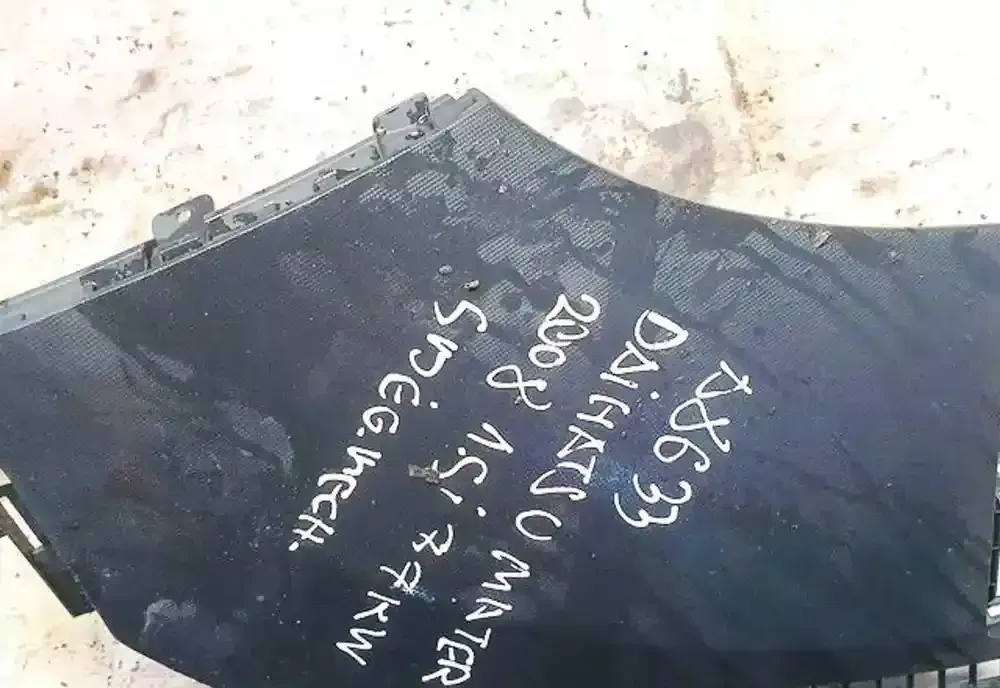 DAIHATSU MATER
2008 1.5i 77KW
5 MĖG.MECH.